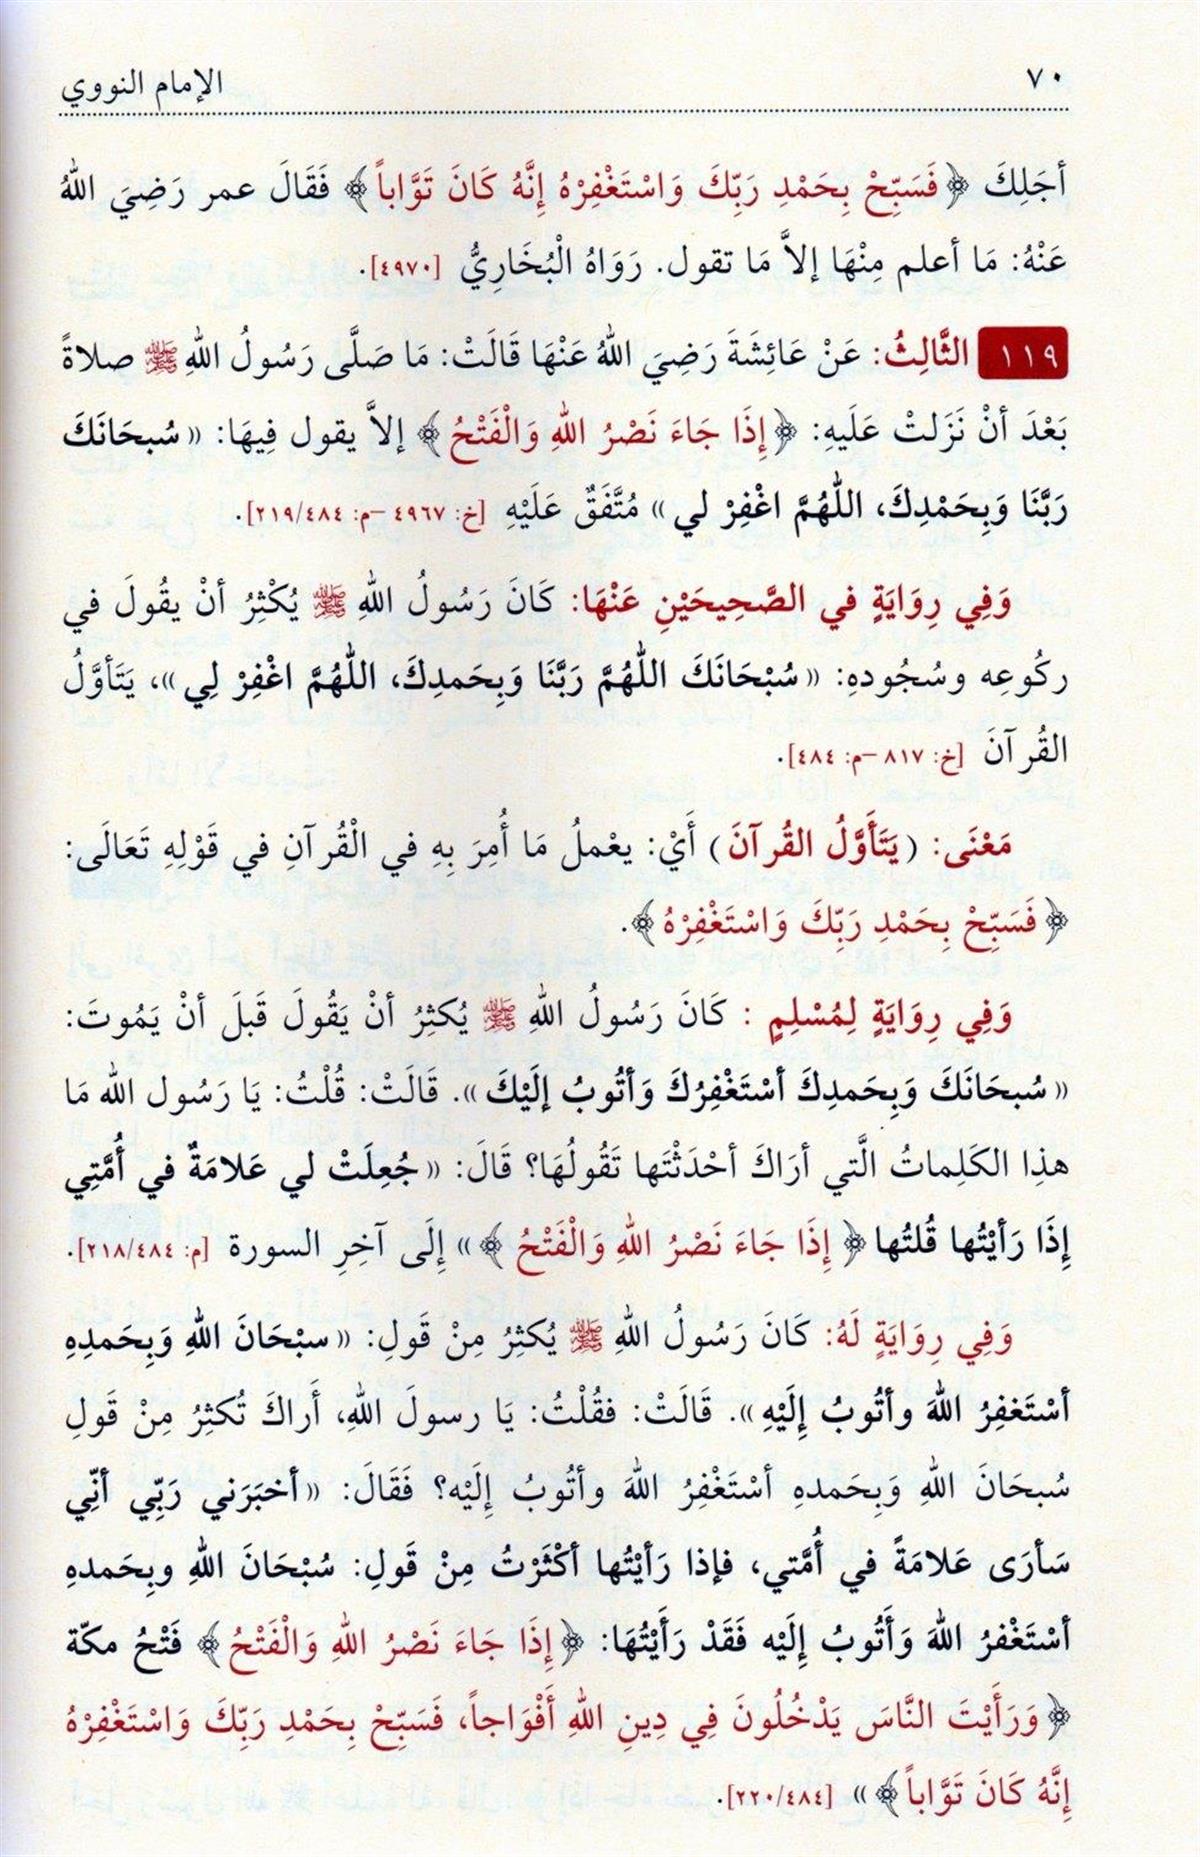 ٧٠
الإمام النووي
أجَلِكَ ﴿فَسَبِّحْ بِحَمْدِ رَبِّكَ وَاسْتَغْفِرْهُ إِنَّهُ كَانَ تَوَّاباً﴾ فَقَالَ عمر رَضِيَ اللهُ
عَنْهُ: مَا أعلم مِنْهَا إلاَّ مَا تقول. رَوَاهُ الْبُخَارِيُّ [٤٩٧٠].
١١٩ الثَّالِثُ: عَنْ عَائِشَةَ رَضِيَ اللهُ عَنْهَا قَالَتْ: مَا صَلَّى رَسُولُ اللهِ ﷺ صلاةً
بَعْدَ أنْ نَزَلتْ عَلَيهِ: ﴿إِذَا جَاءَ نَصْرُ اللهِ وَالْفَتْحُ﴾ إلاَّ يقول فِيهَا: «سُبحَانَكَ
رَبَّنَا وَبِحَمْدِكَ، اللهُمَّ اغْفِرْ لي» مُتَّفَقٌ عَلَيْهِ [خ: ٤٩٦٧ –م: ٢١٩/٤٨٤].
وَفِي رِوَايَةٍ في الصَّحِيحَيْنِ عَنْهَا: كَانَ رَسُولُ اللهِ ﷺ يُكْثِرُ أنْ يقُولَ في
ركُوعِه وسُجُودهِ: «سُبْحَانَكَ اللهُمَّ رَبَّنَا وَبِحَمدِكَ، اللهُمَّ اغْفِرْ لِي»، يَتَأوَّلُ
القُرآنَ [خ: ٨١٧ –م: ٤٨٤].
مَعْنَى: (يَتَأَوَّلُ القُرآنَ) أَيْ: يعْملُ مَا أُمِرَ بِهِ في الْقُرآنِ في قَوْلِهِ تَعَالَى:
﴿فَسَبِّحْ بِحَمْدِ رَبِّكَ وَاسْتَغْفِرْهُ﴾.
وَفِي رِوَايَةٍ لِمُسْلِمٍ : كَانَ رَسُولُ اللهِ ﷺ يُكثِرُ أنْ يَقُولَ قَبلَ أنْ يَمُوتَ:
«سُبحَانَكَ وَبِحَمدِكَ أسْتَغْفِرُكَ وَأتُوبُ إلَيْكَ». قَالَتْ: قُلْتُ: يَا رَسُول الله مَا
هذِا الكَلِماتُ الَّتي أرَاكَ أحْدَثْتَها تَقُولُهَا؟ قَالَ: «جُعِلَتْ لي عَلامَةٌ في أُمَّتِي
إذَا رَأيْتُها قُلتُها ﴿إِذَا جَاءَ نَصْرُ اللهِ وَالْفَتْحُ﴾» إلَى آخِرِ السورة [م: ٢١٨/٤٨٤].
وَفِي رِوَايَةٍ لَهُ: كَانَ رَسُولُ اللهِ ﷺ يُكثِرُ مِنْ قَولِ: «سبْحَانَ اللهِ وَبِحَمدِهِ
أسْتَغفِرُ اللهَ وأتُوبُ إِلَيْهِ». قَالَتْ: فقُلْتُ: يَا رسولَ اللهِ، أَراكَ تُكثِرُ مِنْ قَولِ
سُبحَانَ اللهِ وَبِحَمدهِ أسْتَغْفِرُ اللهَ وأتُوبُ إلَيْه؟ فَقَالَ: «أخبَرَني رَبِّي أنِّي
سَأرَى عَلامَةً في أُمَّتي، فإذا رَأيْتُها أكْثَرْتُ مِنْ قَولِ: سُبْحَانَ اللهِ وبِحَمدهِ
أسْتَغْفرُ اللهَ وَأَتُوبُ إلَيْه فَقَدْ رَأَيْتُهَا: ﴿إِذَا جَاءَ نَصْرُ اللهِ وَالْفَتْحُ﴾ فَتْحُ مكّة
﴿وَرَأَيْتَ النَّاسَ يَدْخُلُونَ فِي دِينِ اللهِ أَفْوَاجاً، فَسَبِّحْ بِحَمْدِ رَبِّكَ وَاسْتَغْفِرْهُ
إِنَّهُ كَانَ تَوَّاباً﴾» [٢٢٠/٤٨٤].